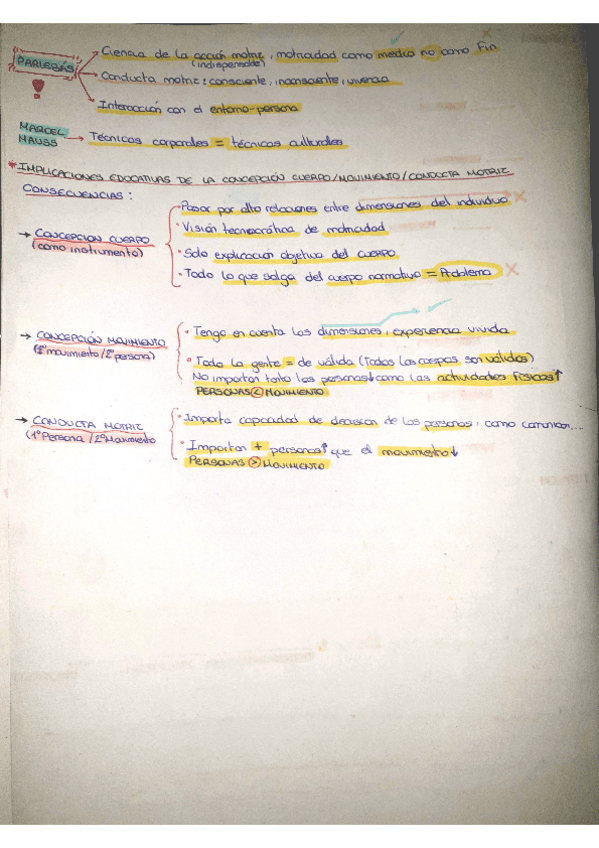 PARLEBÁS
Ciencia de la acción motriz, motricidad como medio no como fin.
(indispensable)
Conducta motriz: consciente, inconsciente, vivencia
Interacción con el entorno-persona
MARCEL
MAUSS
Técnicas corporales = técnicas culturales
*IMPLICACIONES EDUCATIVAS DE LA CONCEPCIÓN CUERPO/MOVIMIENTO/CONDUCTA MOTRIZ
CONSECUENCIAS:
→ CONCEPCIÓN CUERPO
(como instrumento)
· Pasar por alto relaciones entre dimensiones del individuo
· Visión tecnocrática de motricidad
· Solo explicación objetiva del cuerpo
· Todo lo que salga del cuerpo normativo = Problema
→ CONCEPCIÓN MOVIMIENTO
(1º movimiento/2º persona)
· Tengo en cuenta las dimensiones, experiencia vivida
· Toda la gente = de válida (Todos los cuerpos son válidos)
No importan tanto las personas↓ como las actividades físicas↑
PERSONAS < MOVIMIENTO
→ CONDUCTA MOTRIZ
(1º Persona /2º Movimiento
· Importa capacidad de decision de las personas, como comunican...
· Importan + personas↑ que el movimiento↓
PERSONAS > MOVIMIENTO